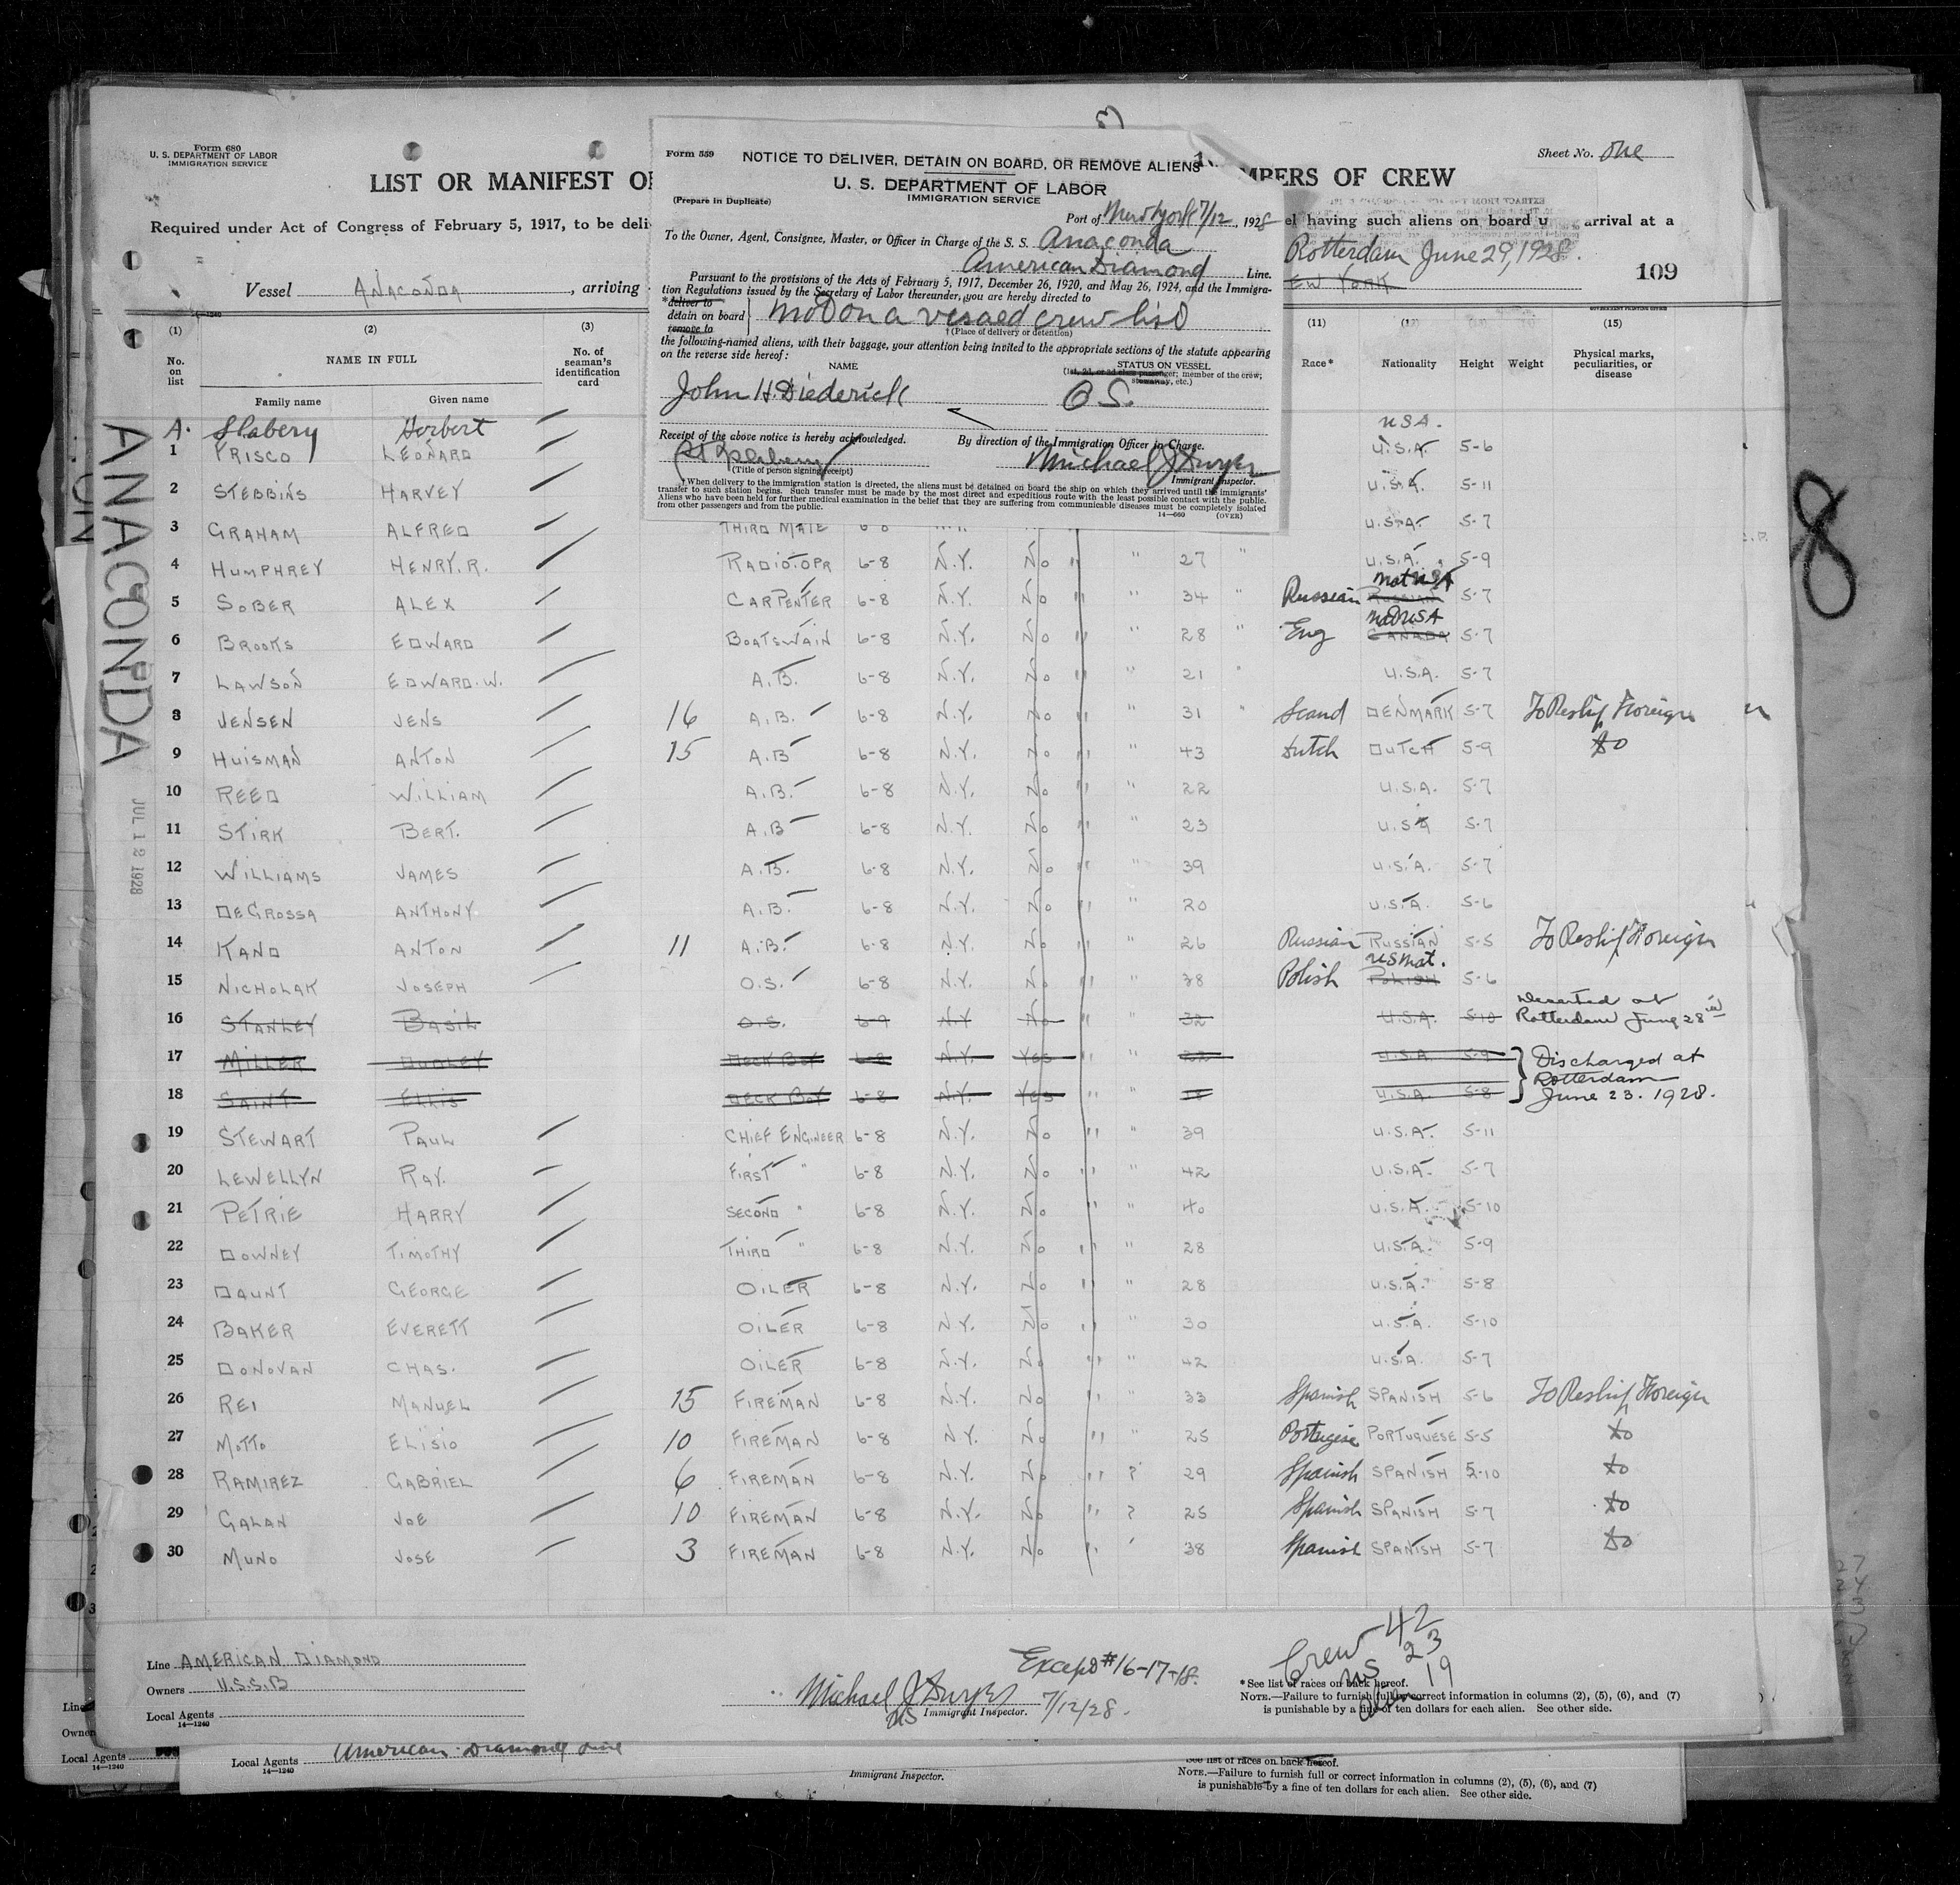 Form 680
U. S. DEPARTMENT OF LABOR
IMMIGRATION SERVICE
Sheet No. One
LIST OR MANIFEST O
MBERS OF CREW
Required under Act of Congress of February 5, 1917, to be deli
el having such aliens on board u arrival at a
Rotterdam June 29, 1928.
Vessel ANACONDA, arriving
EW YORK
109
Form 559
NOTICE TO DELIVER, DETAIN ON BOARD, OR REMOVE ALIENS
U. S. DEPARTMENT OF LABOR
IMMIGRATION SERVICE
(Prepare in Duplicate)
Port of New York 7/12, 1928
To the Owner, Agent, Consignee, Master, or Officer in Charge of the S. S. Anaconda
American Diamond Line.
Pursuant to the provisions of the Acts of February 5, 1917, December 26, 1920, and May 26, 1924, and the Immigra-
tion Regulations issued by the Secretary of Labor thereunder, you are hereby directed to
*deliver to
detain on board
remove to
Not on a visaed crew list
†(Place of delivery or detention)
the following-named aliens, with their baggage, your attention being invited to the appropriate sections of the statute appearing
on the reverse side hereof:
NAME
STATUS ON VESSEL
(1st, 2d, or 3d class passenger; member of the crew;
stowaway, etc.)
John H. Diederick O S.
Receipt of the above notice is hereby acknowledged.
By direction of the Immigration Officer in Charge.
(Title of person signing receipt)
Michael J Dwyer
Immigrant Inspector.
†When delivery to the immigration station is directed, the aliens must be detained on board the ship on which they arrived until the immigrants'
transfer to such station begins. Such transfer must be made by the most direct and expeditious route with the least possible contact with the public.
Aliens who have been held for further medical examination in the belief that they are suffering from communicable diseases must be completely isolated
from other passengers and from the public.
14—660
(OVER)
(1) (2) (3) (11) (15)
No. on list
NAME IN FULL
Family name Given name
No. of seaman's identification card
Race* Nationality Height Weight
Physical marks, peculiarities, or disease
ANACONDA
JUL 12 1928
8
A. Slabery Herbert USA.
1 FRISCO LEONARD U.S.A. 5-6
2 STEBBINS HARVEY U.S.A. 5-11
3 GRAHAM ALFRED THIRD MATE 6-8 U.S.A. 5-7
4 HUMPHREY HENRY. R. RADIO. OPR 6-8 N.Y. No " " 27 " U.S.A. 5-9
5 SOBER ALEX CARPENTER 6-8 N.Y. No " " 34 " Russian RUSSIAN Nat USA 5-7
6 BROOKS EDWARD BOATSWAIN 6-8 N.Y. No " " 28 " Eng CANADA Nat USA 5-7
7 LAWSON EDWARD. W. A.B. 6-8 N.Y. No " " 21 " U.S.A. 5-7
8 JENSEN JENS 16 A.B. 6-8 N.Y. No " " 31 " Scand DENMARK 5-7 To Reship Foreign
9 HUISMAN ANTON 15 A.B 6-8 N.Y. No " " 43 Dutch DUTCH 5-9 do
10 REED WILLIAM A.B. 6-8 N.Y. No " " 22 U.S.A. 5-7
11 STIRK BERT. A.B 6-8 N.Y. No " " 23 U.S.A 5-7
12 WILLIAMS JAMES A.B. 6-8 N.Y. No " " 39 U.S.A. 5-7
13 DEGROSSA ANTHONY. A.B. 6-8 N.Y. No " " 20 U.S.A. 5-6
14 KAND ANTON 11 A.B. 6-8 N.Y. No " " 26 Russian RUSSIAN 5-5 To Reship Foreign
15 NICHOLAK JOSEPH O.S. 6-8 N.Y. No " " 38 Polish POLISH US Nat. 5-6
16 STANLEY BASIL O.S. 6-9 N.Y No " " 32 U.S.A. 5-10 Deserted at Rotterdam June 28
17 MILLER DUDLEY DECK BOY 6-8 N.Y. YES " " U.S.A. 5-9
18 SAINT ELLIS DECK BOY 6-8 N.Y. YES " " 18 U.S.A. 5-8
} Discharged at
Rotterdam
June 23. 1928.
19 STEWART PAUL CHIEF ENGINEER 6-8 N.Y. No " " 39 U.S.A. 5-11
20 LEWELLYN RAY. FIRST " 6-8 N.Y. No " " 42 U.S.A. 5-7
21 PETRIE HARRY SECOND " 6-8 N.Y. No " " 40 U.S.A. 5-10
22 DOWNEY TIMOTHY THIRD " 6-8 N.Y. No " " 28 U.S.A. 5-9
23 DAUNT GEORGE OILER 6-8 N.Y. No " " 28 U.S.A. 5-8
24 BAKER EVERETT OILER 6-8 N.Y. No " " 30 U.S.A. 5-10
25 DONOVAN CHAS. OILER 6-8 N.Y. No " " 42 U.S.A. 5-7
26 REI MANUEL 15 FIREMAN 6-8 N.Y. No " " 33 Spanish SPANISH 5-6 To Reship Foreign
27 MOTTO ELISIO 10 FIREMAN 6-8 N.Y. No " " 25 Portugese PORTUGUESE 5-5 do
28 RAMIREZ GABRIEL 6 FIREMAN 6-8 N.Y. No " " 29 Spanish SPANISH 5-10 do
29 GALAN JOE 10 FIREMAN 6-8 N.Y. No " " 25 Spanish SPANISH 5-7 do
30 MUNO JOSE 3 FIREMAN 6-8 N.Y. No " " 38 Spanish SPANISH 5-7 do
Line AMERICAN DIAMOND
Owners U.S.S.B
Local Agents
14—1240
Except #16-17-18.
Michael J Dwyer 7/12/28.
US Immigrant Inspector.
Crew 42
US 23
Alien 19
*See list of races on back hereof.
NOTE.—Failure to furnish full or correct information in columns (2), (5), (6), and (7)
is punishable by a fine of ten dollars for each alien. See other side.
Local Agents American Diamond Line
14—1240
Immigrant Inspector.
See list of races on back hereof.
NOTE.—Failure to furnish full or correct information in columns (2), (5), (6), and (7)
is punishable by a fine of ten dollars for each alien. See other side.
Line
Owner
Local Agents
14—1240